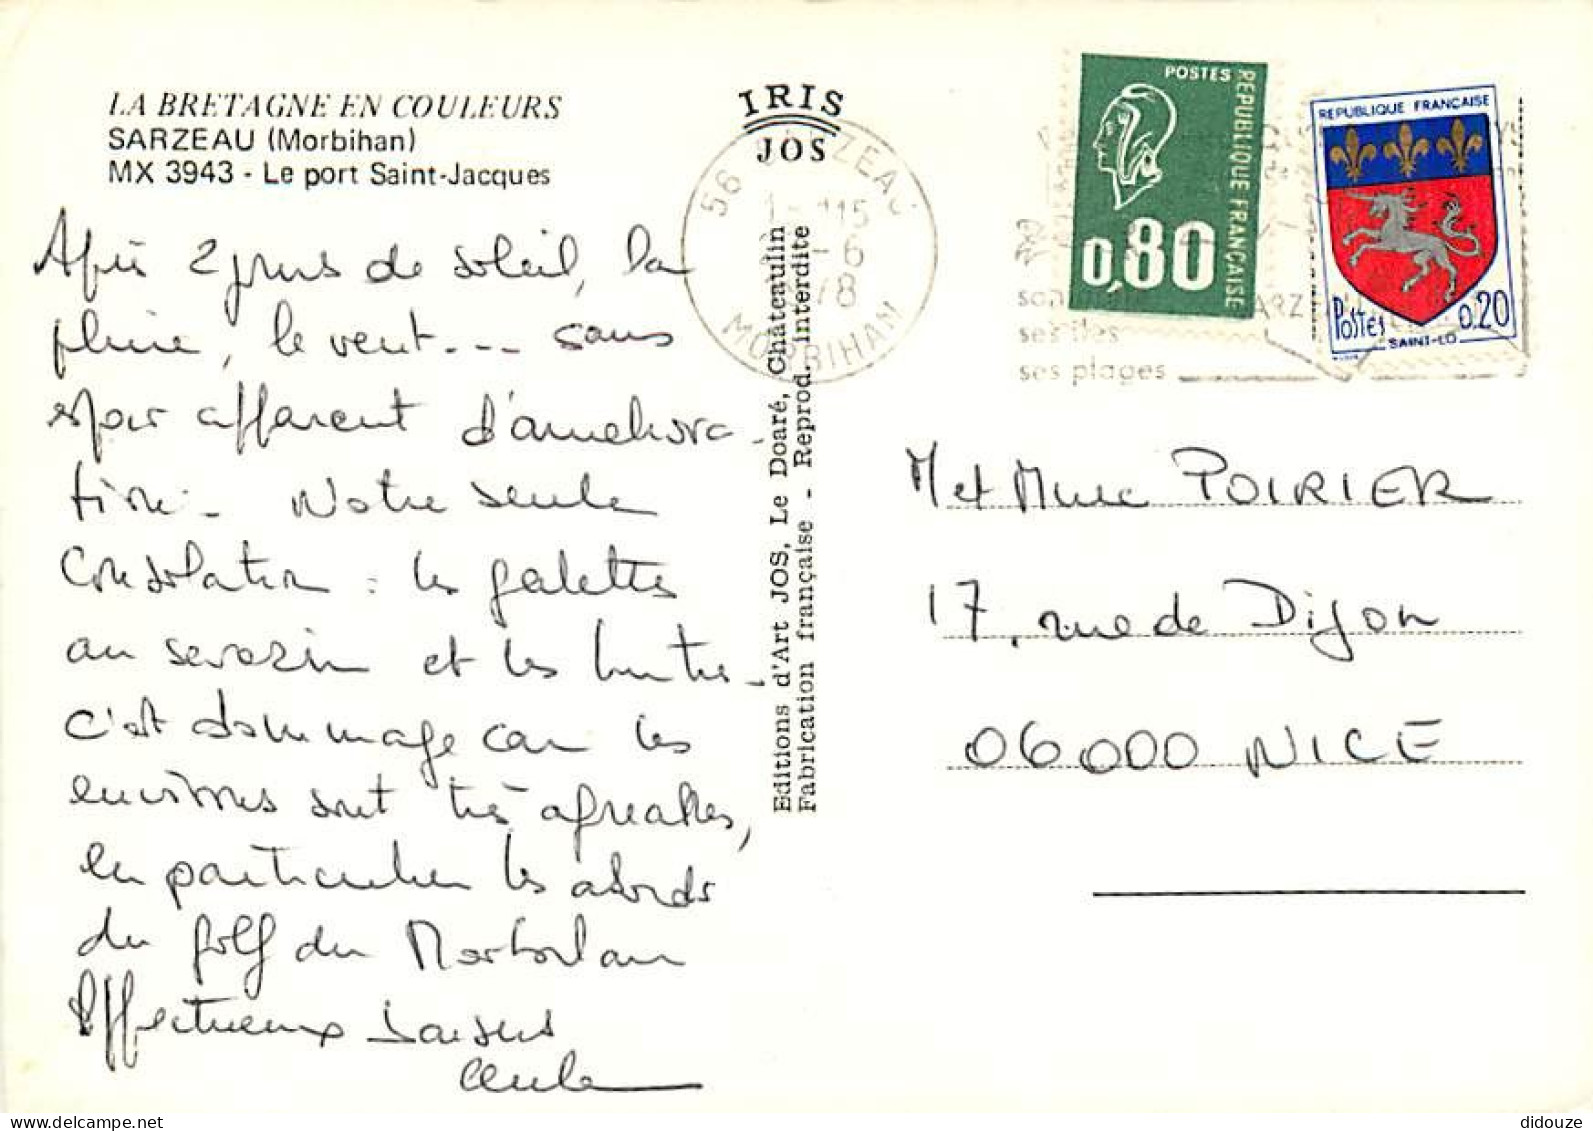 LA BRETAGNE EN COULEURS
SARZEAU (Morbihan)
MX 3943 - Le port Saint-Jacques
Après 2 jours de soleil, la
pluie, le vent... sans
espoir apparent d'améliora-
tion. Notre seule
Consolation : les galettes
au sarrazin et les huitres_
c'est dommage car les
environs sont très agréables,
en particulier les abords
du golf du Morbihan
Affectueux baisers
IRIS
JOS
Editions d'Art JOS, Le Doaré, Châteaulin
Fabrication française - Reprod. Interdite
56 SARZEAU
MORBIHAN
ses îles
ses plages
POSTES
REPUBLIQUE FRANÇAISE
0,80
REPUBLIQUE FRANÇAISE
POSTES
0,20
SAINT-LO
M et Mme POIRIER
17, rue de Dijon
06000 NICE
didouze